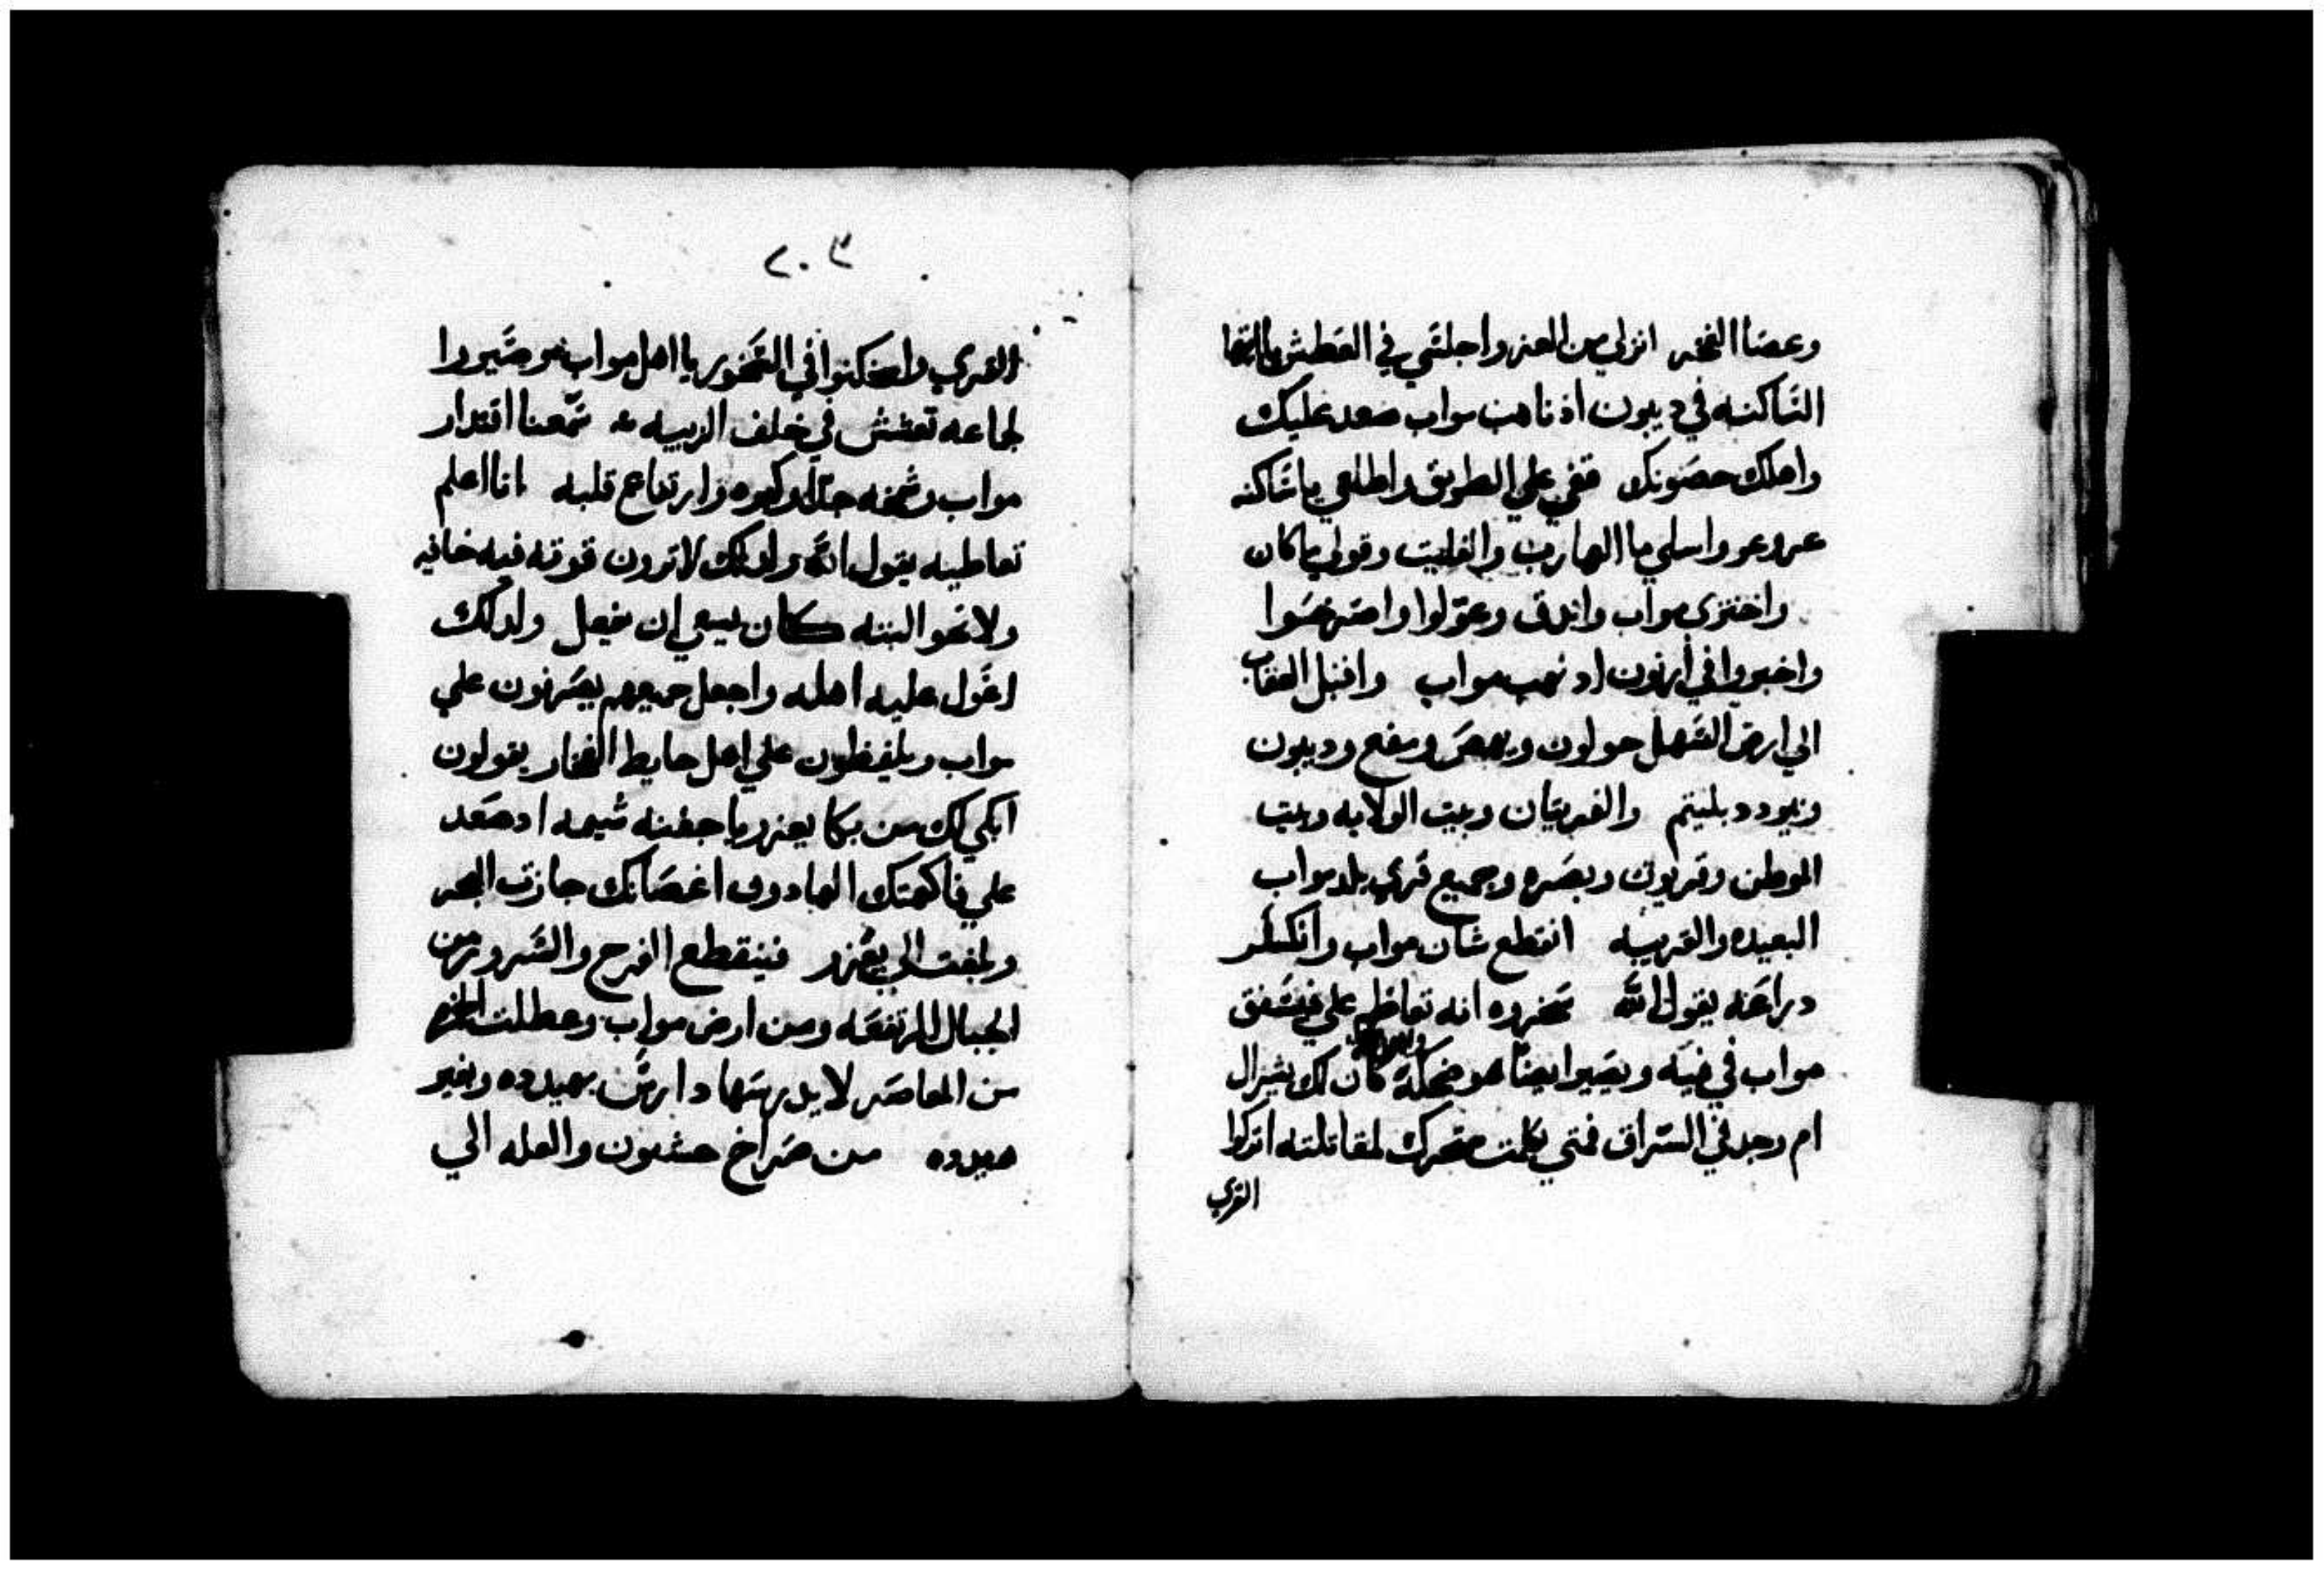 وعصا الفخر انزلي من العز واجلسي في العطش يا ايتها
الساكنه في ديبون اذ ناهب مواب صعد عليك
واهلك حصونك قفي علي الطريق واطلعي يا ساكنه
عروعر واسلي يا الهارب والفليت وقولي ما كان
واختزي مواب واندق وعولوا واصرخوا
واخبروا في ارنون اد نهب مواب واقبل العقاب
الي ارض السهل حولون ويهصى ومفع وديبون
ونبود دبليتم والقريتان وبيت الولايه وبيت
الموطن وقريوت وبصره وجميع قري بلد مواب
البعيده والقريبه انقطع شان مواب وانكسر
دراعه يقول الله سخروه انه تعاظم علي فيشفق
مواب في قيه ويصير ايضا هو ضحكة كان لك يشرال
ام وجد في السراق فمتي تكلمت متحرك لمقاتلته اتركوا
القري
٢٠٣
القري واسكنوا في الصخور يا اهل مواب وصيروا
لجماعه تعشش في خلف الزبيه سمعنا اقتدار
مواب وشمخه جدا وكبره وارتفاع قلبه انا اعلم
تعاطيه يقول الله ولدلك لا ترون قوته فيه خانيه
ولا نحو البنه كان ينبغي ان يفعل ولدلك
اعول عليه اهله واجعل جميعهم يصرخون علي
مواب ويلفظون علي اهل حايط الفخار يقولون
ابكي لك من بكا يعزر يا جفنه شيمه اد صعد
علي فاكهتك الهادون اغصانك جازت البحر
وبلغت الي يعزر فينقطع الفرح والسرور من
الجبال المرتفعه ومن ارض مواب وعطلت الخمر
من المعاصر لا يدرسها دارس بهيدده وبغير
هيدده من صراخ حشبون والعله الي